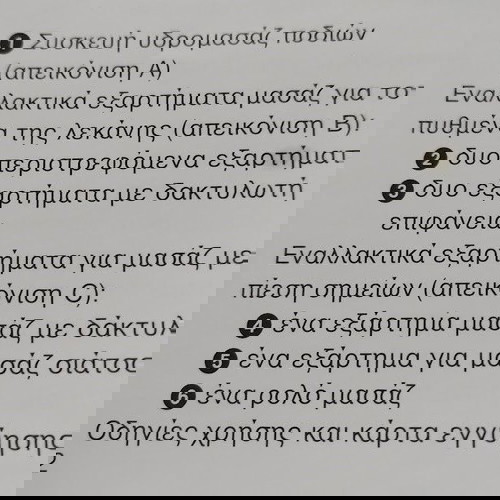 1 Συσκευή υδρομασάζ ποδιών
(απεικόνιση A)
Εναλλακτικά εξαρτήματα μασάζ για το
πυθμένα της λεκάνης (απεικόνιση B):
2 δυο περιστρεφόμενα εξαρτήματ
3 δυο εξαρτήματα με δακτυλωτή
επιφάνεια
Εναλλακτικά εξαρ
τήματα για μασάζ με
πίεση σημείων (απεικόνιση C):
4 ένα εξάρτημα μασάζ με δάκτυλ
5 ένα εξάρτημα για μασάζ σιάτσ
6 ένα ρολό μασάζ
Οδηγίες χρήσης και κάρτα εγγύησης